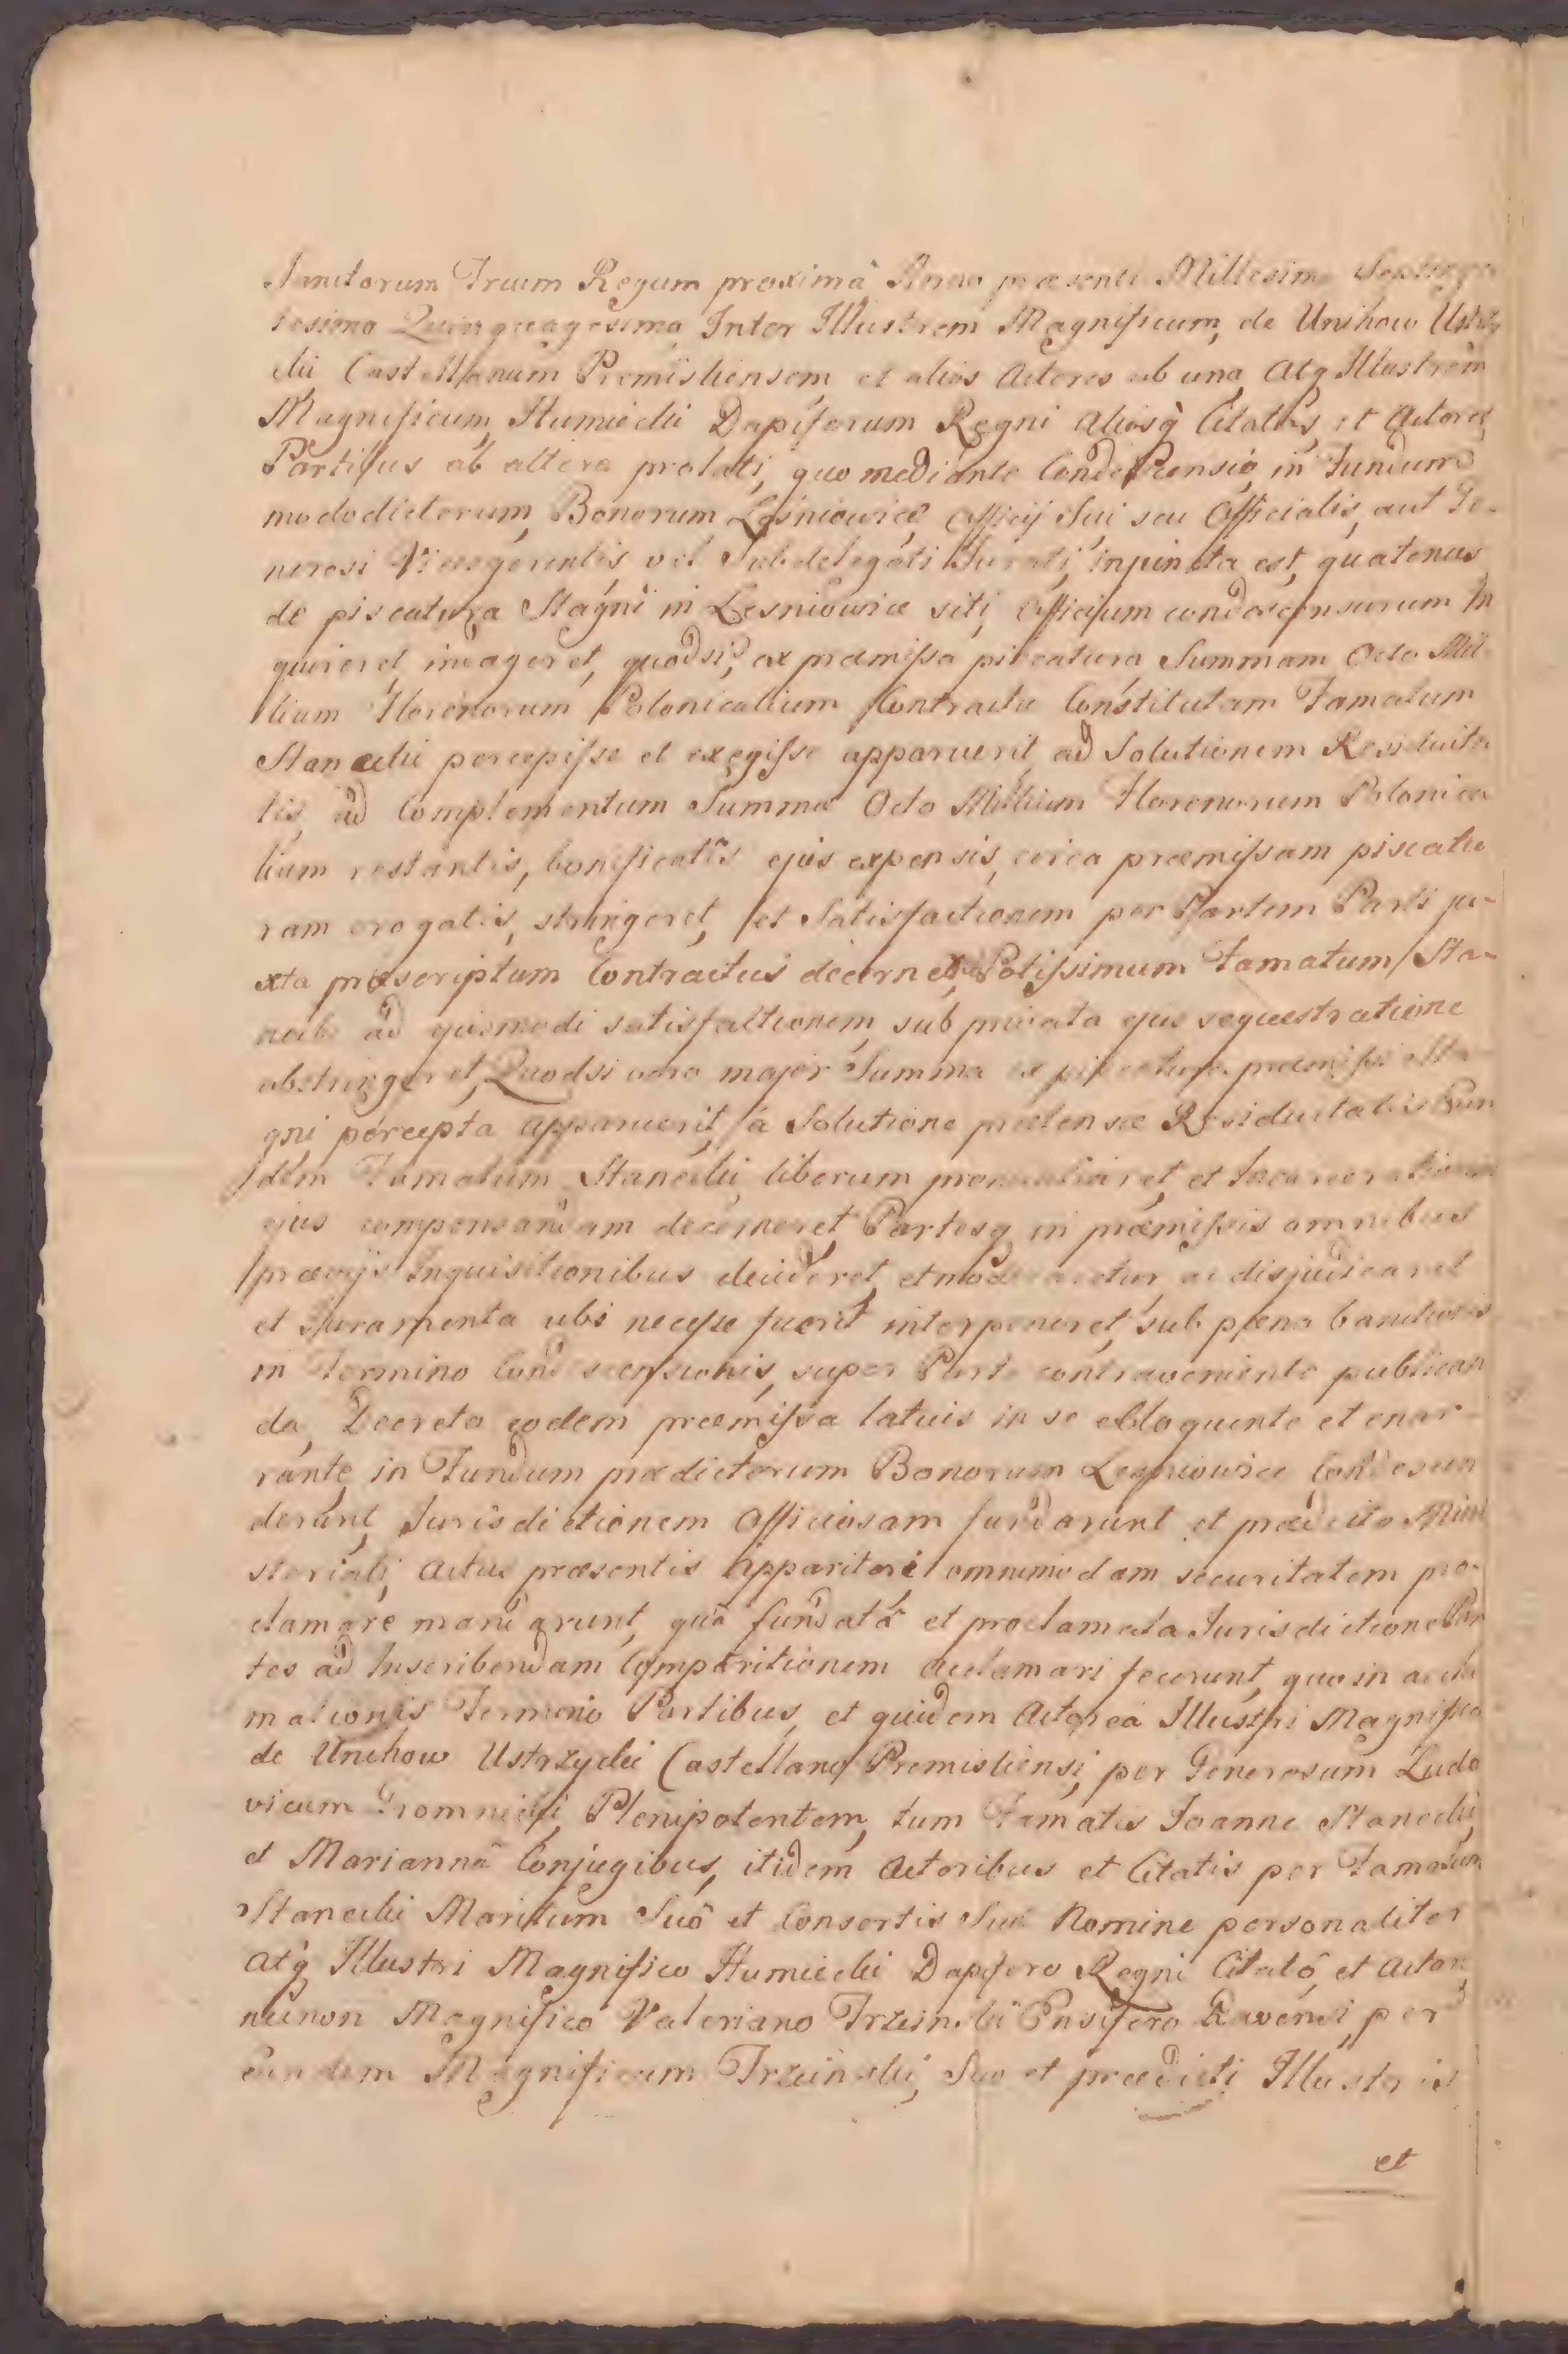 Sanctorum Trium Regum proximâ Anno præsenti Millesimo Septinge
tesimo Quinquagesimo, Inter Illustrem Magnificum, de Unihow Ustrzy
cki Castellanum Premisliensem, et alios Actores ab una, Atq Illustrem
Magnificum, Humiecki Dapiferum Regni Aliosq̀ Citatos, et Actores
Partibus ab altera prolati, quo mediante Condescensio, in Fundum
modo dictorum, Bonorum Lesniowice Officij Sui seu Officialis, aut Ge-
nerosi Vicesgerentis, vel Subdelegati Jurati, injuncta est, quatenus
de piscatura Stagni in Lesniowice siti, Officium condescensurum In
quireret, indageret, quodsi, ex præmissa piscatura Summam Octo Mil
lium Florenorum Polonicalium Contractu Constitutam Famatum
Stanecki percepisse et exegisse apparuerit, ad Solutionem Residuita
tis, ad Complementum Summæ Octo Millium Florenorum Polonica
lium restantis, bonificatis ejus expensis, circa præmissam piscatu
ram erogatis, stringeret, et Satisfactionem per Partem Parti ju-
xta præscriptum Contractus decerneret, Potissimum Famatum Sta-
necki ad ejusmodi satisfactionem, sub privata ejus sequestratione
abstringeret, Quodsi vero major Summa ex piscatura præmissi Sta
gni percepta apparuerit, a Solutione prætensæ Residuitatis Eun
dem Famatum Stanecki, liberum pronuntiaret, et Incarcerationem
ejus compensandam decerneret, Partesq in præmissis omnibus
prævijs Inquisitionibus decideret, et ac disjudicaret
et Juramenta ubi necesse fuerit interponeret, sub pœna bannitionis
in Termino Condescensionis, super Parte contraveniente publican
da, Decreto eodem præmissa latuis in se eloquente et enar-
rante, in Fundum prædictorum Bonorum Lesniowice Condescen
derunt, Jurisdictionem Officiosam fundarunt et prædicto Mini
steriali, Actus præsentis Apparitori omnimodam securitatem pro-
clamare mandarunt, quâ fundatâ et proclamata Jurisdictione Par
tes ad Inscribendam Comparitionem acclamari fecerunt, quo in accla
mationis Termino Partibus, et quidem Actorea Illustri Magnifico
de Unihow Ustrzycki Castellano Premisliensi, per Generosum Ludo
vicum Gromnicki, Plenipotentem, tum Famatis Joanne Stanecki,
et Mariannâ Conjugibus, itidem Actoribus et Citatis per Famatum
Stanecki Maritum Suô et Consortis Suæ Nomine personaliter
Atq̀ Illustri Magnifico Humiecki Dapifero Regni Citatô, et Actore,
necnon Magnifico Valeriano Trzcinski Ensifero Ravensi, per
eundem Magnificum Trzcinski, Suo et prædicti Illustris
et